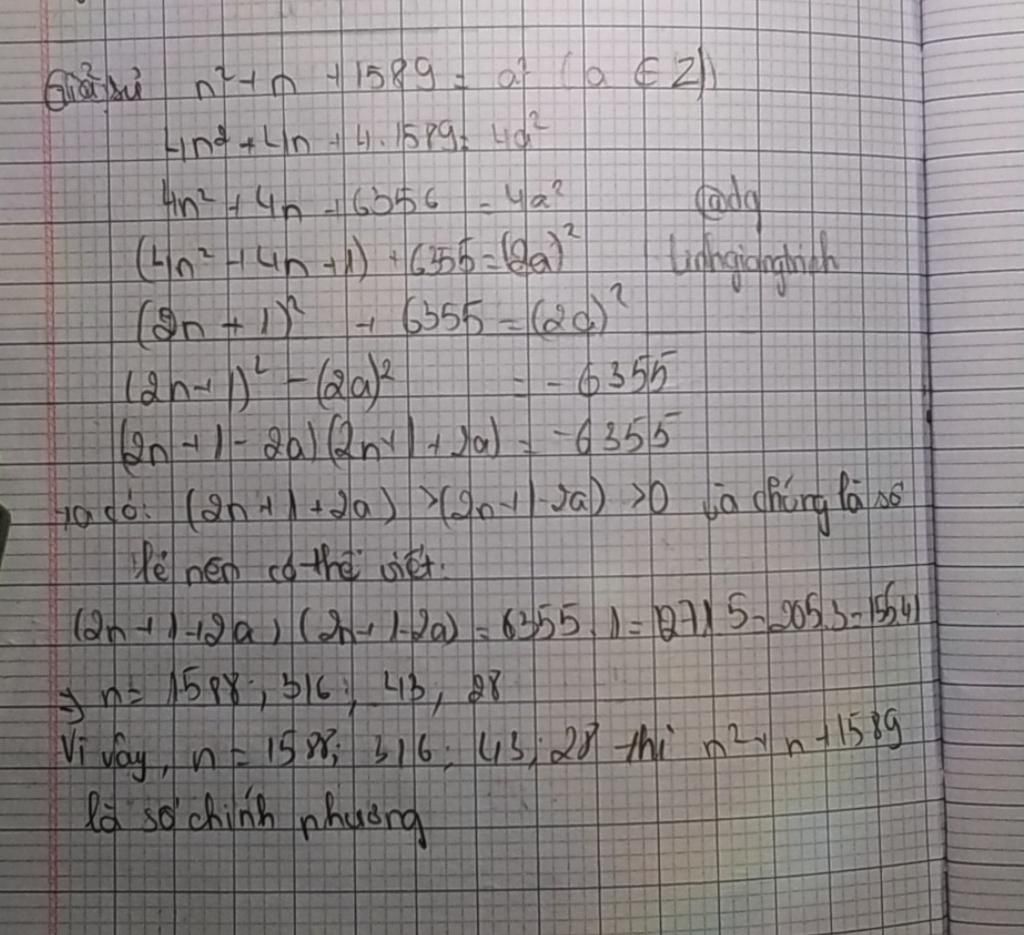 Giả sử n² + n + 1589 = a² (a ∈ Z)
4n² + 4n + 4.1589 = 4a²
4n² + 4n + 6356 = 4a² @dg
(4n² + 4n + 1) + 6355 = (2a)² Linhgiangbich
(2n + 1)² + 6355 = (2a)²
(2n+1)² - (2a)² = -6355
(2n+1-2a)(2n+1+2a) = -6355
Ta có: (2n+1+2a) > (2n+1-2a) > 0 và chúng là số
lẻ nên có thể viết:
(2n+1+2a) (2n+1-2a) = 6355.1 = 1271.5 = 205.31 = 155.41
⇒ n = 1588; 316; 43, 28
Vì vậy, n = 1588; 316; 43; 28 thì n² + n + 1589
là số chính phương